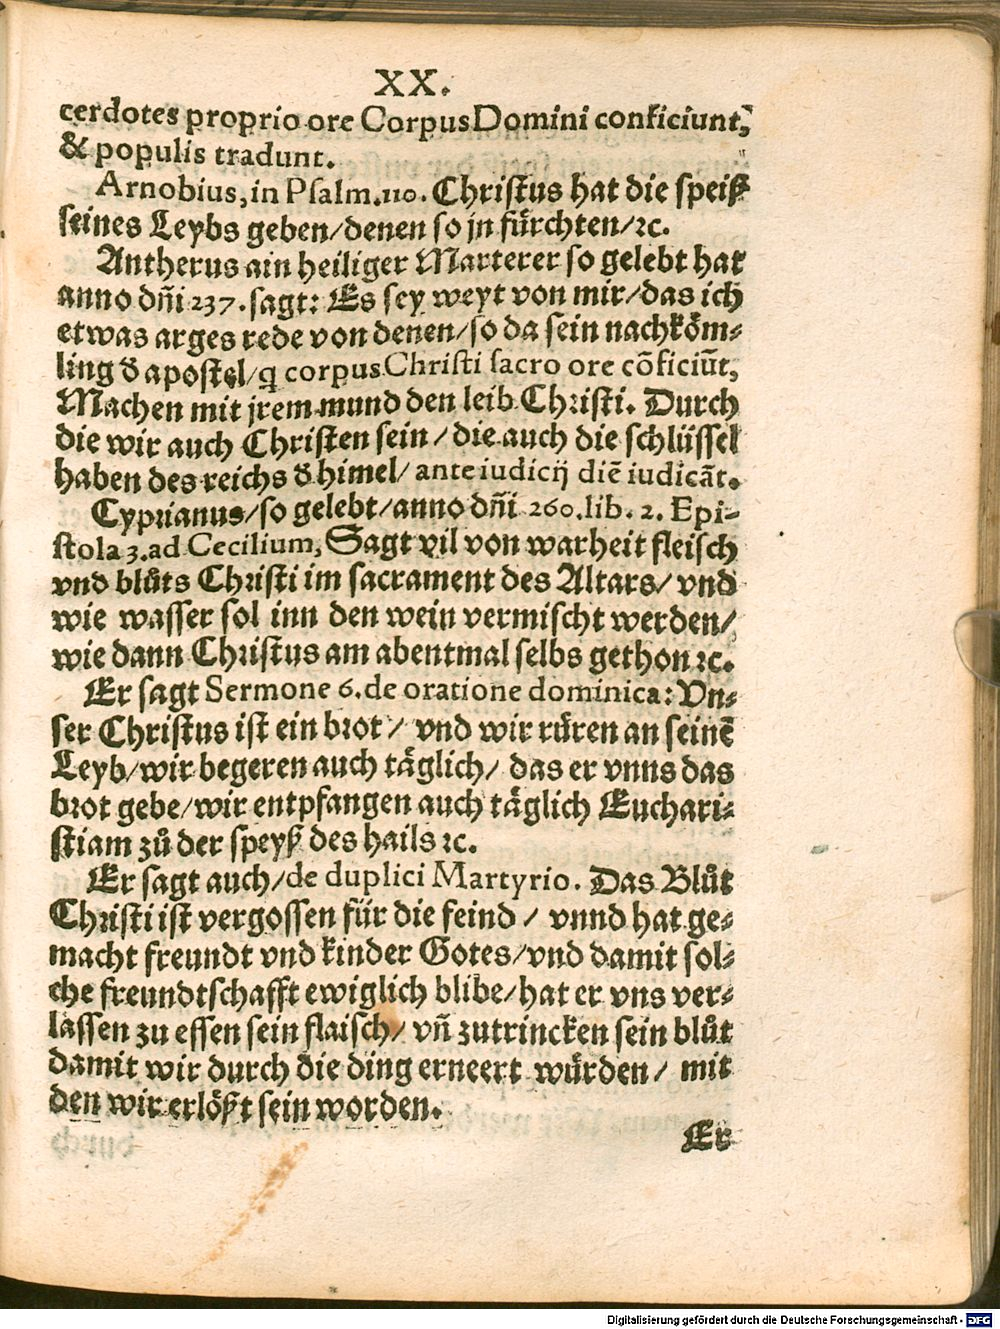 XX.
cerdotes proprio ore Corpus Domini conficiunt,
& populis tradunt.
Arnobius, in Psalm. 110. Chriſtus hat die ſpeiß
ſeines Leybs geben/denen ſo jn fürchten/ꝛc.
Antherus ain heiliger Marterer ſo gelebt hat
anno dñi 237. ſagt: Es ſey weyt von mir/das ich
etwas arges rede von denen/ſo da ſein nachkoͤm⸗
ling đ apoſtel/q̃ corpus Chriſti ſacro ore cõficiũt,
Machen mit jrem mund den leib Chriſti. Durch
die wir auch Chriſten ſein/die auch die ſchlüſſel
haben des reichs đ himel/ ante iudicij diẽ iudicãt.
Cyprianus/ſo gelebt/anno dñi 260. lib. 2. Epi-
ſtola 3. ad Cecilium, Sagt vil von warheit fleiſch
vnd bluͦts Chriſti im ſacrament des Altars/ vnd
wie waſſer ſol inn den wein vermiſcht werden/
wie dann Chriſtus am abentmal ſelbs gethon ꝛc.
Er ſagt Sermone 6. de oratione dominica: Vn⸗
ſer Chriſtus iſt ein brot/ vnd wir ruͤren an ſeinẽ
Leyb/wir begeren auch taͤglich/ das er vnns das
brot gebe/wir entpfangen auch taͤglich Euchari⸗
ſtiam zuͦ der ſpeyß des hails ꝛc.
Er ſagt auch/de duplici Martyrio. Das Bluͦt
Chriſti iſt vergoſſen für die feind/ vnnd hat ge⸗
macht freundt vnd kinder Gotes/vnd damit ſol⸗
che freundtſchafft ewiglich blibe/hat er vns ver⸗
laſſen zu eſſen ſein flaiſch/ vñ zutrincken ſein bluͦt
damit wir durch die ding erneert würden/ mit
den wir erloͤßt ſein worden.
Er
Digitalisierung gefördert durch die Deutsche Forschungsgemeinschaft - DFG